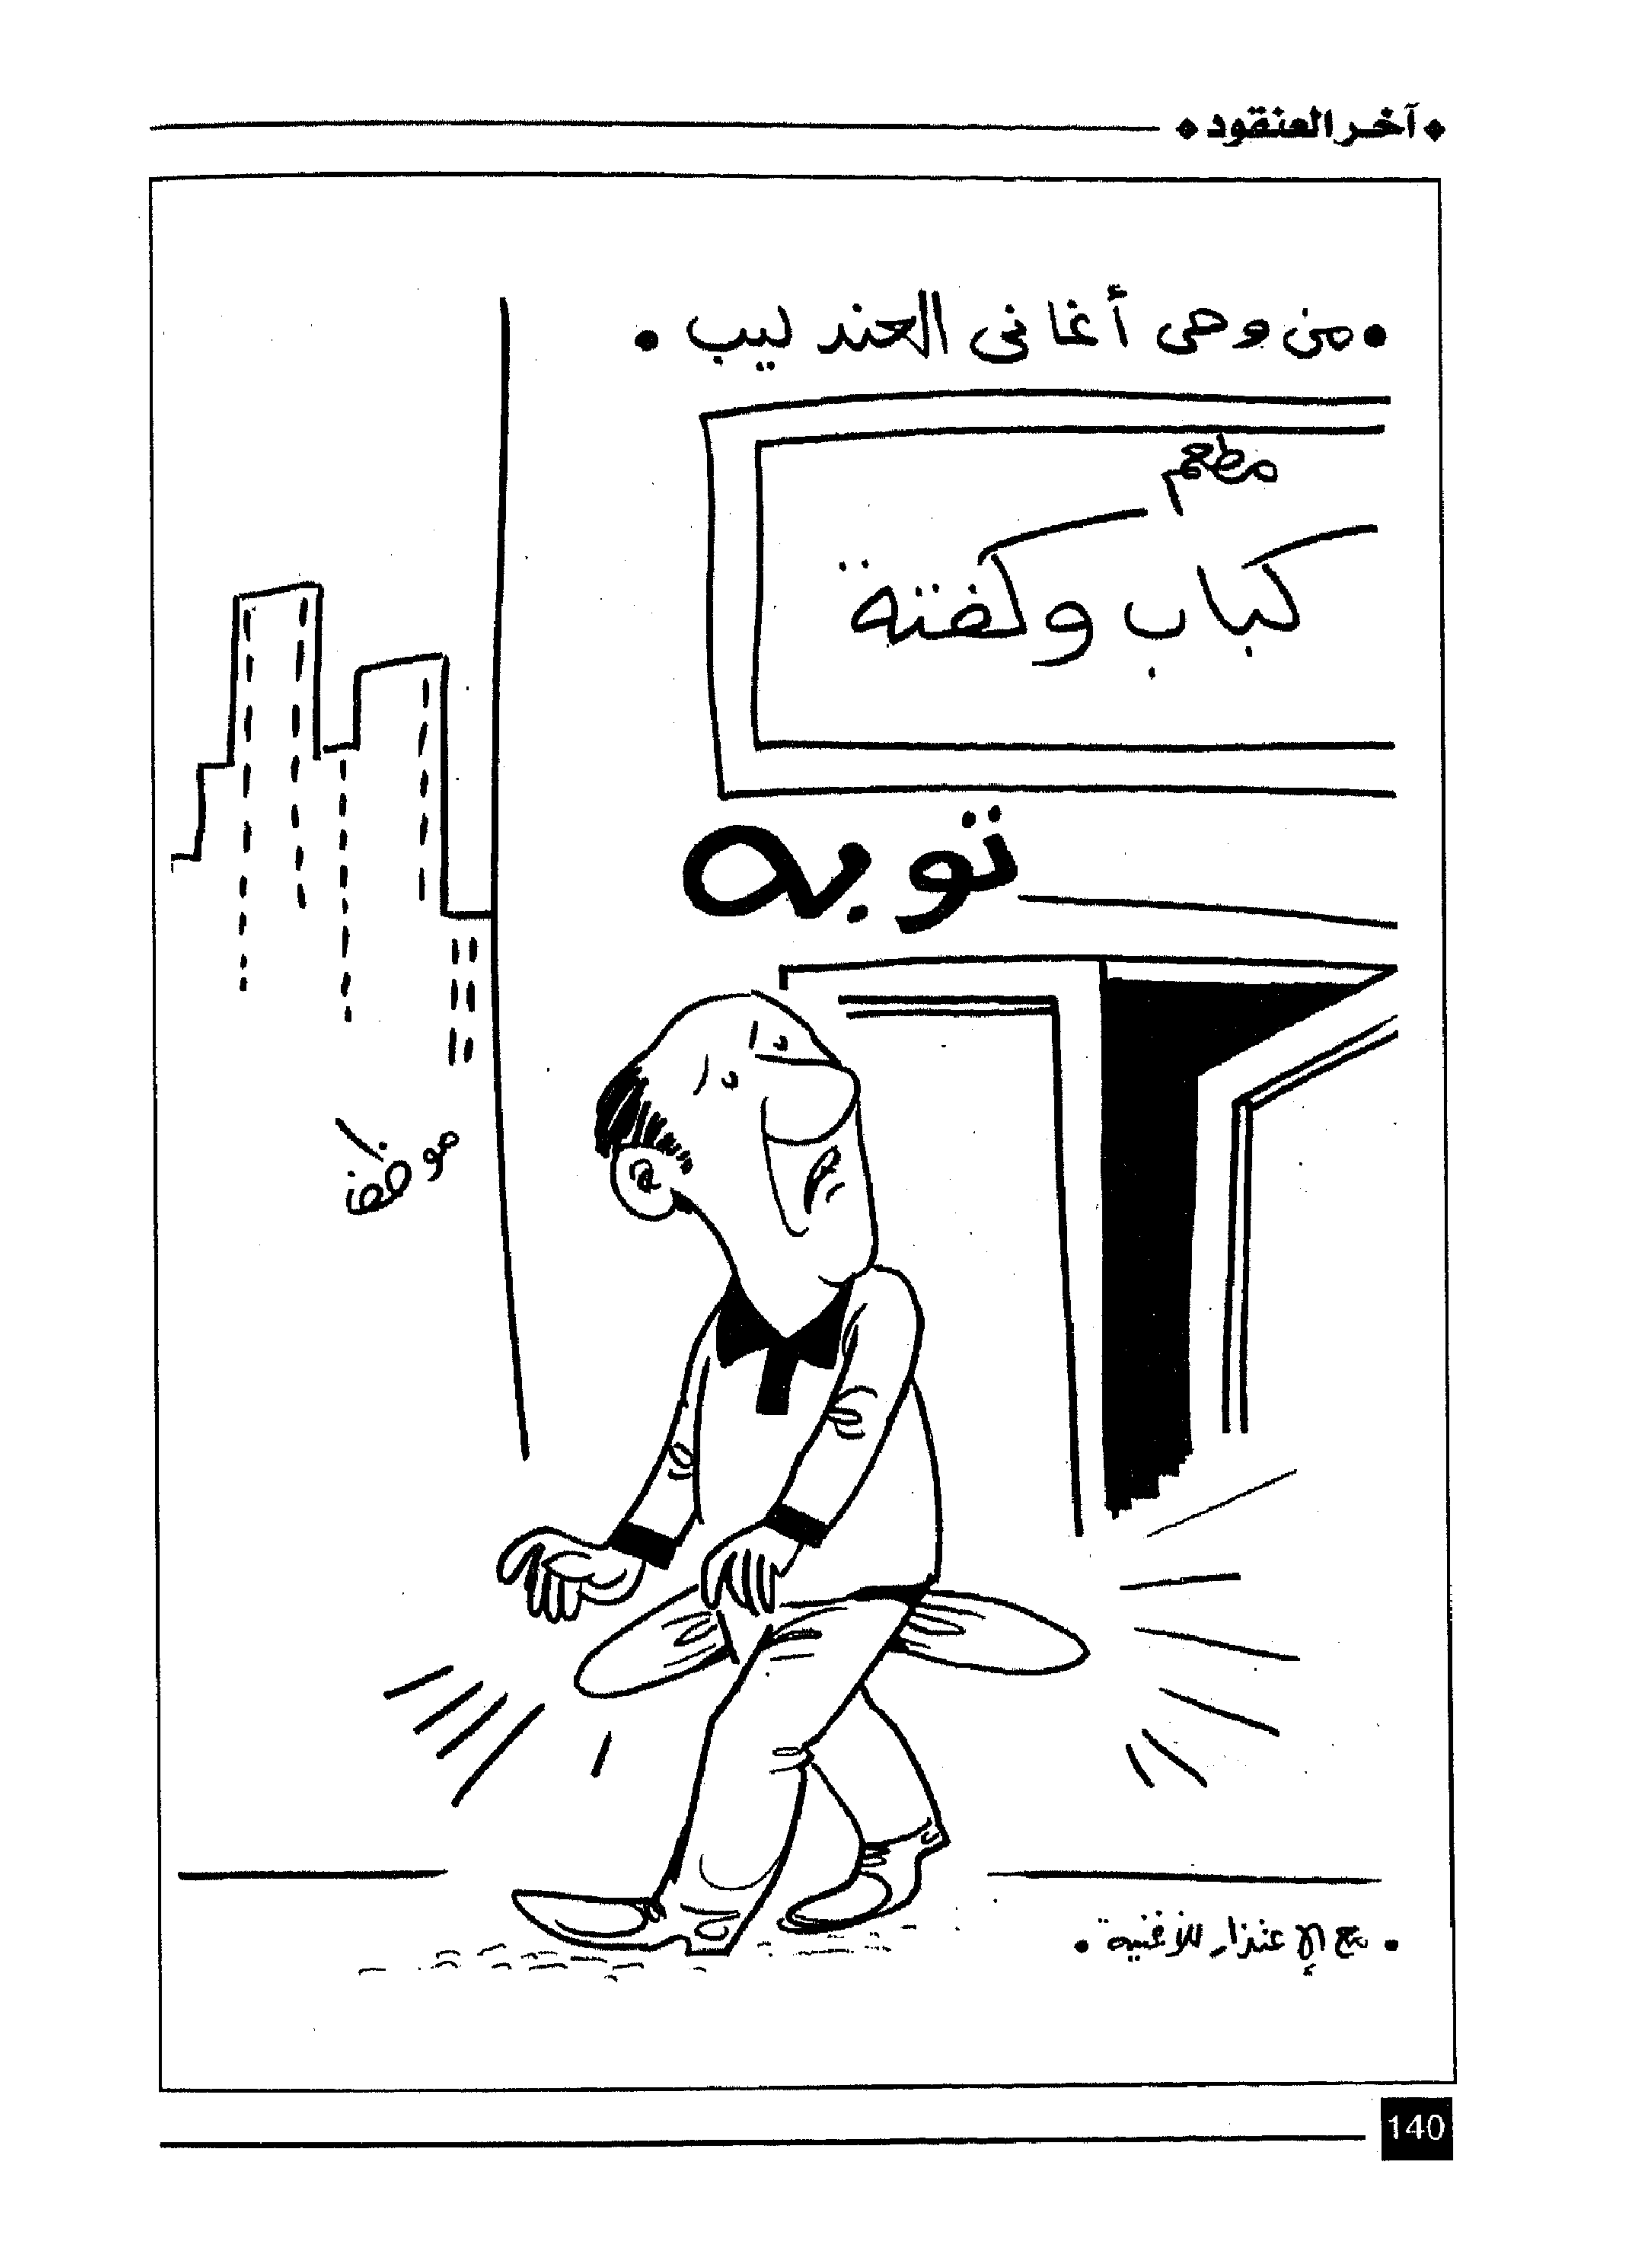 آخر العنقود
• من وحى أغانى العندليب •
مطعم
كباب وكفتة
توبه
• مع الإعتذار للأغنية •
140